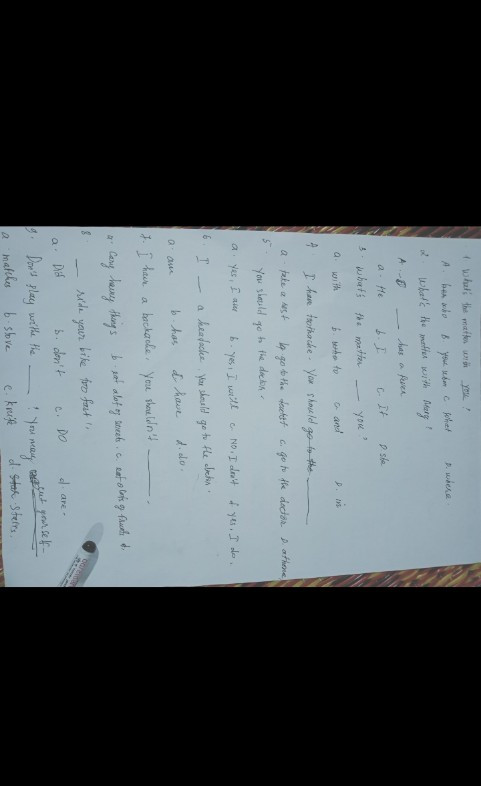 1. What's the matter with you?
A who B you c what D where
2. What's the matter with Mary?
A. ___ has a fever
a. He b. I c It D she
3. What's the matter ___ you?
a. with b. c. and D. in
4. I have toothache. You should ___
a. take a rest b. go to the dentist c. go to the doctor D. at home
5. You should go to the doctor.
a. Yes, I am b. Yes, I will c. NO, I don't d yes, I do.
6. I ___ a headache. You should go to the doctor.
a. am b. has c. have d. do.
7. I have a backache. You shouldn't ___.
a. Cary heavy things b eat a lot of sweets. c. eat a lots of fruits d.
8. ___ ride your bike too fast!
a. Did b. don't c. DO d. are.
9. Don't play with the ___! You may cut yourself
a. matches b stove c. knife d stairs.